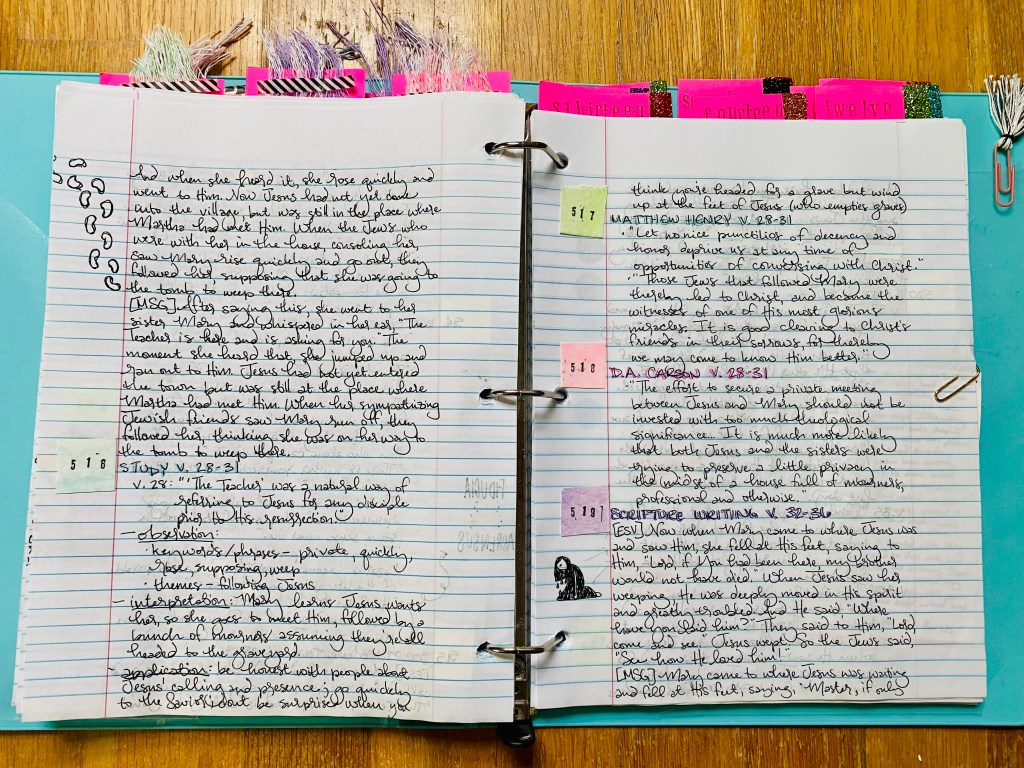 sthirteen
fourteen
twelve
And when she heard it, she rose quickly and
went to Him. Now Jesus had not yet come
into the village, but was still in the place where
Martha had met Him. When the Jews who
were with her in the house, consoling her,
saw Mary rise quickly and go out, they
followed her, supposing that she was going to
the tomb to weep there.
[MSG] After saying this, she went to her
sister Mary and whispered in her ear, "The
Teacher is here and is asking for you." The
moment she heard that, she jumped up and
ran out to Him. Jesus had not yet entered
the town but was still at the place where
Martha had met Him. When her sympathizing
Jewish friends saw Mary run off, they
followed her, thinking she was on her way to
the tomb to weep there.
516
STUDY V. 28-31
v. 28: "'The Teacher' was a natural way of
referring to Jesus for any disciple
prior to His resurrection."
- observation:
· keywords/phrases - private, quickly,
rose, supposing, weep
· themes - following Jesus
- interpretation: Mary learns Jesus wants
her, so she goes to meet Him, followed by a
bunch of mourners assuming they're all
headed to the graveyard.
- application: be honest with people about
Jesus' calling and presence; go quickly
to the Savior; don't be surprised when you
think you're headed for a grave but wind
up at the feet of Jesus (who empties graves)
517
MATTHEW HENRY V. 28-31
· "Let no nice punctilios of decency and
honor deprive us at any time of
opportunities of conversing with Christ."
· "Those Jews that followed Mary were
thereby led to Christ, and became the
witnesses of one of His most glorious
miracles. It is good cleaving to Christ's
friends in their sorrows, for thereby
we may come to know Him better."
518
D.A. CARSON V. 28-31
· "The effort to secure a private meeting
between Jesus and Mary should not be
invested with too much theological
significance... It is much more likely
that both Jesus and the sisters were
trying to preserve a little privacy in
the midst of a house full of mourners,
professional and otherwise."
519
SCRIPTURE WRITING V. 32-36
[ESV] Now when Mary came to where Jesus was
and saw Him, she fell at His feet, saying to
Him, "Lord, if You had been here, my brother
would not have died." When Jesus saw her
weeping, He was deeply moved in His spirit
and greatly troubled. And He said "Where
have you laid him?" They said to Him, "Lord,
come and see." Jesus wept. So the Jews said,
"See how He loved him!"
[MSG] Mary came to where Jesus was waiting
and fell at His feet, saying, "Master, if only